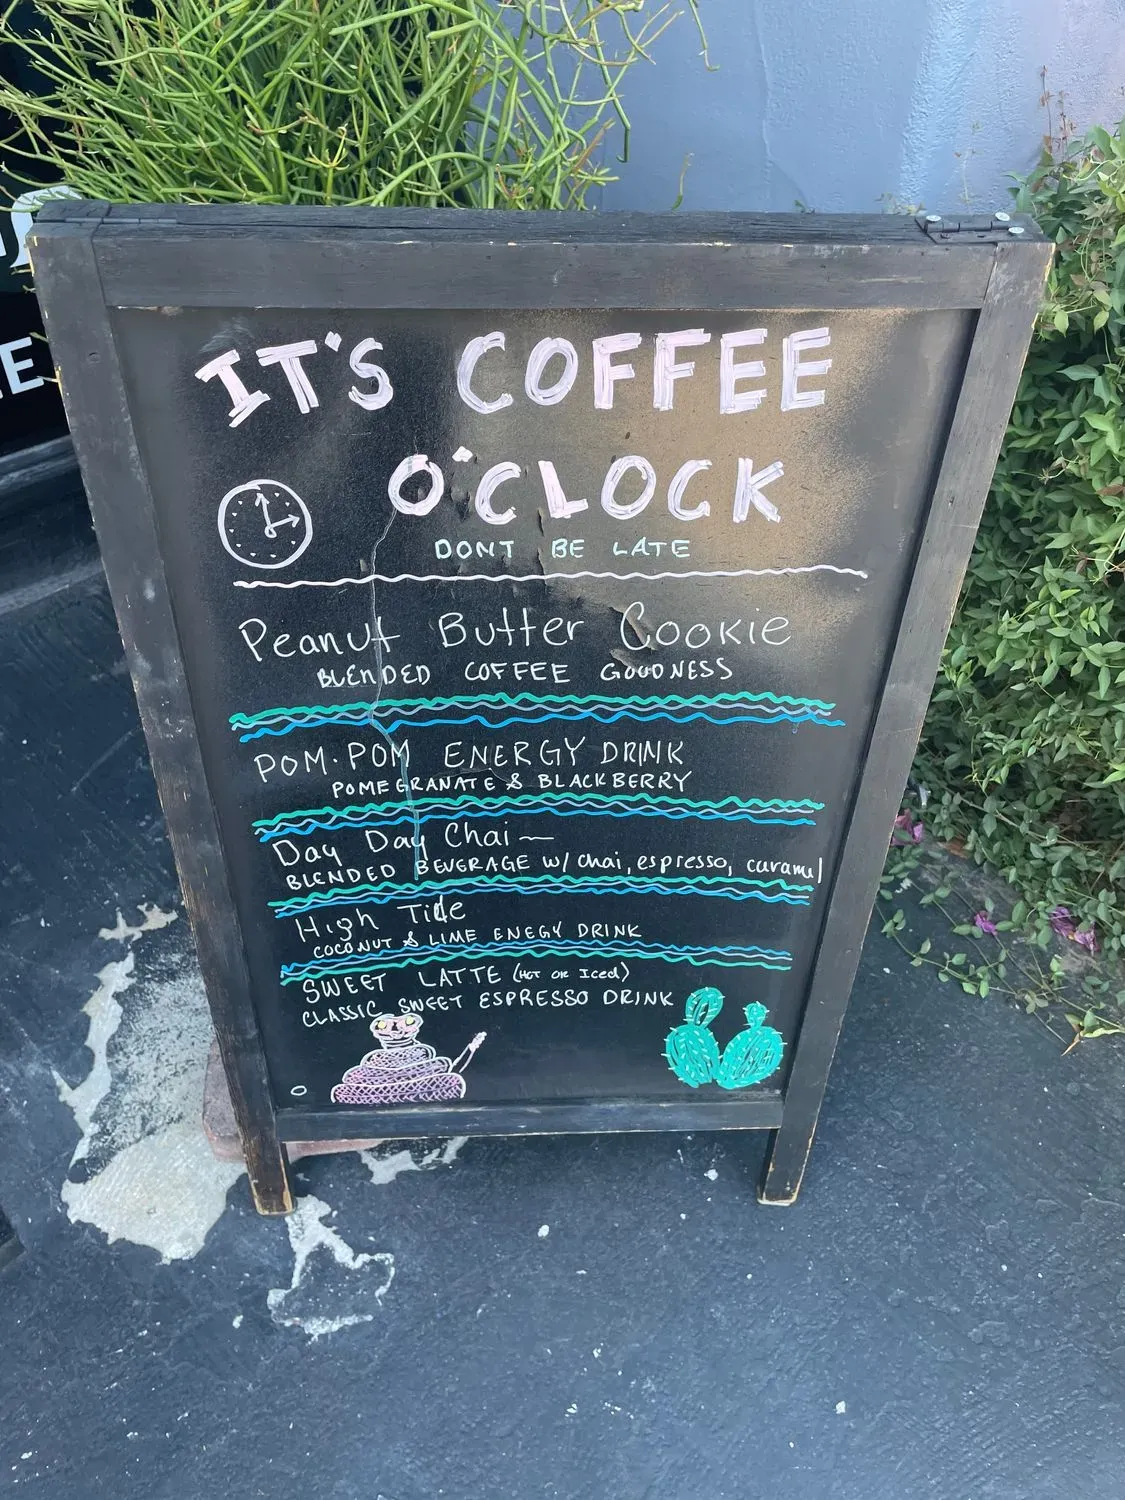 IT'S COFFEE
O'CLOCK
DONT BE LATE
Peanut Butter Cookie
BLENDED COFFEE GOODNESS
POM·POM ENERGY DRINK
POMEGRANATE & BLACKBERRY
Day Day Chai~
BLENDED BEVERAGE w/ chai, espresso, caramel
High Tide
COCONUT & LIME ENEGY DRINK
SWEET LATTE (HOT OR Iced)
CLASSIC SWEET ESPRESSO DRINK